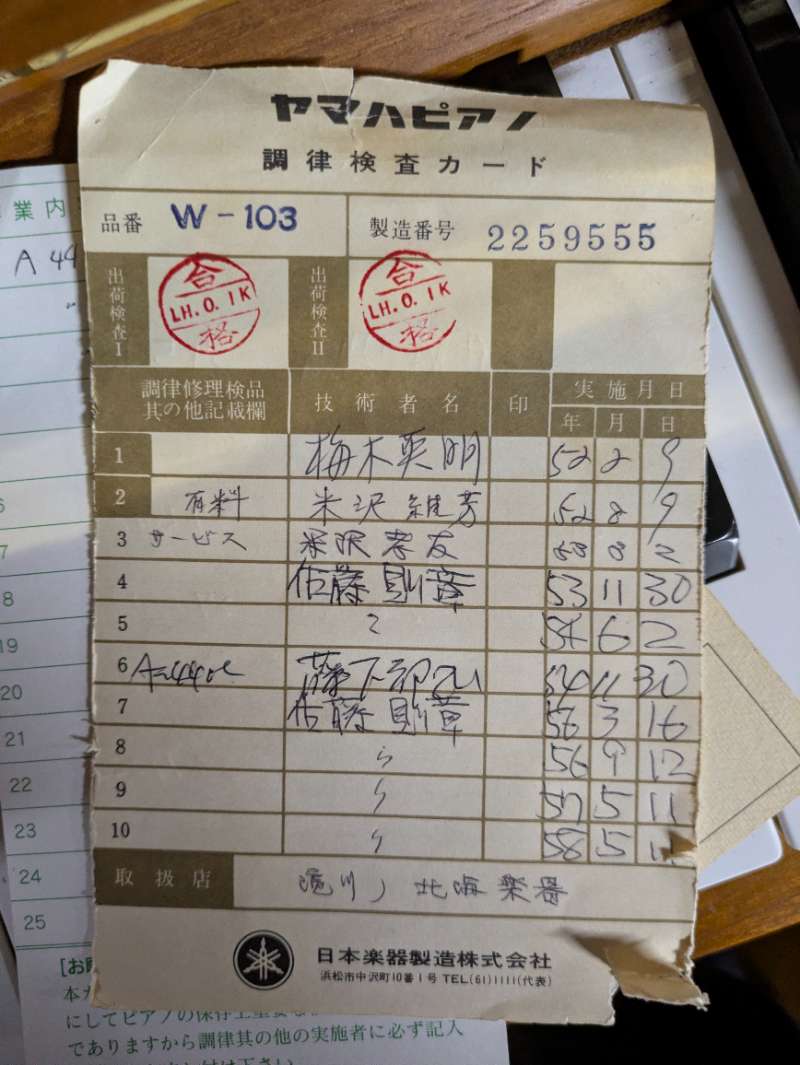 ヤマハピアノ
調律検査カード
品番 W-103 製造番号 2259555
出荷検査I 合格 LH.O.IK 出荷検査II 合格 LH.O.IK
調律修理検品其の他記載欄 技術者名 印 実施月日
年 月 日
1 梅木英明 52 2 9
2 有料 米沢 芳 52 8 9
3 サービス 米沢孝友 53 8 2
4 佐藤則章 53 11 30
5 〃 54 6 2
6 A=440 54 11 30
7 佐藤則章 56 3 16
8 〃 56 9 12
9 〃 57 5 11
10 〃 58 5
取扱店 滝川ノ北海楽器
日本楽器製造株式会社
浜松市中沢町10番1号 TEL(61)1111(代表)
業内
A 44
8
19
20
21
22
23
24
25
にしてピアノの保存上重要な
でありますから調律其の他の実施者に必ず記入